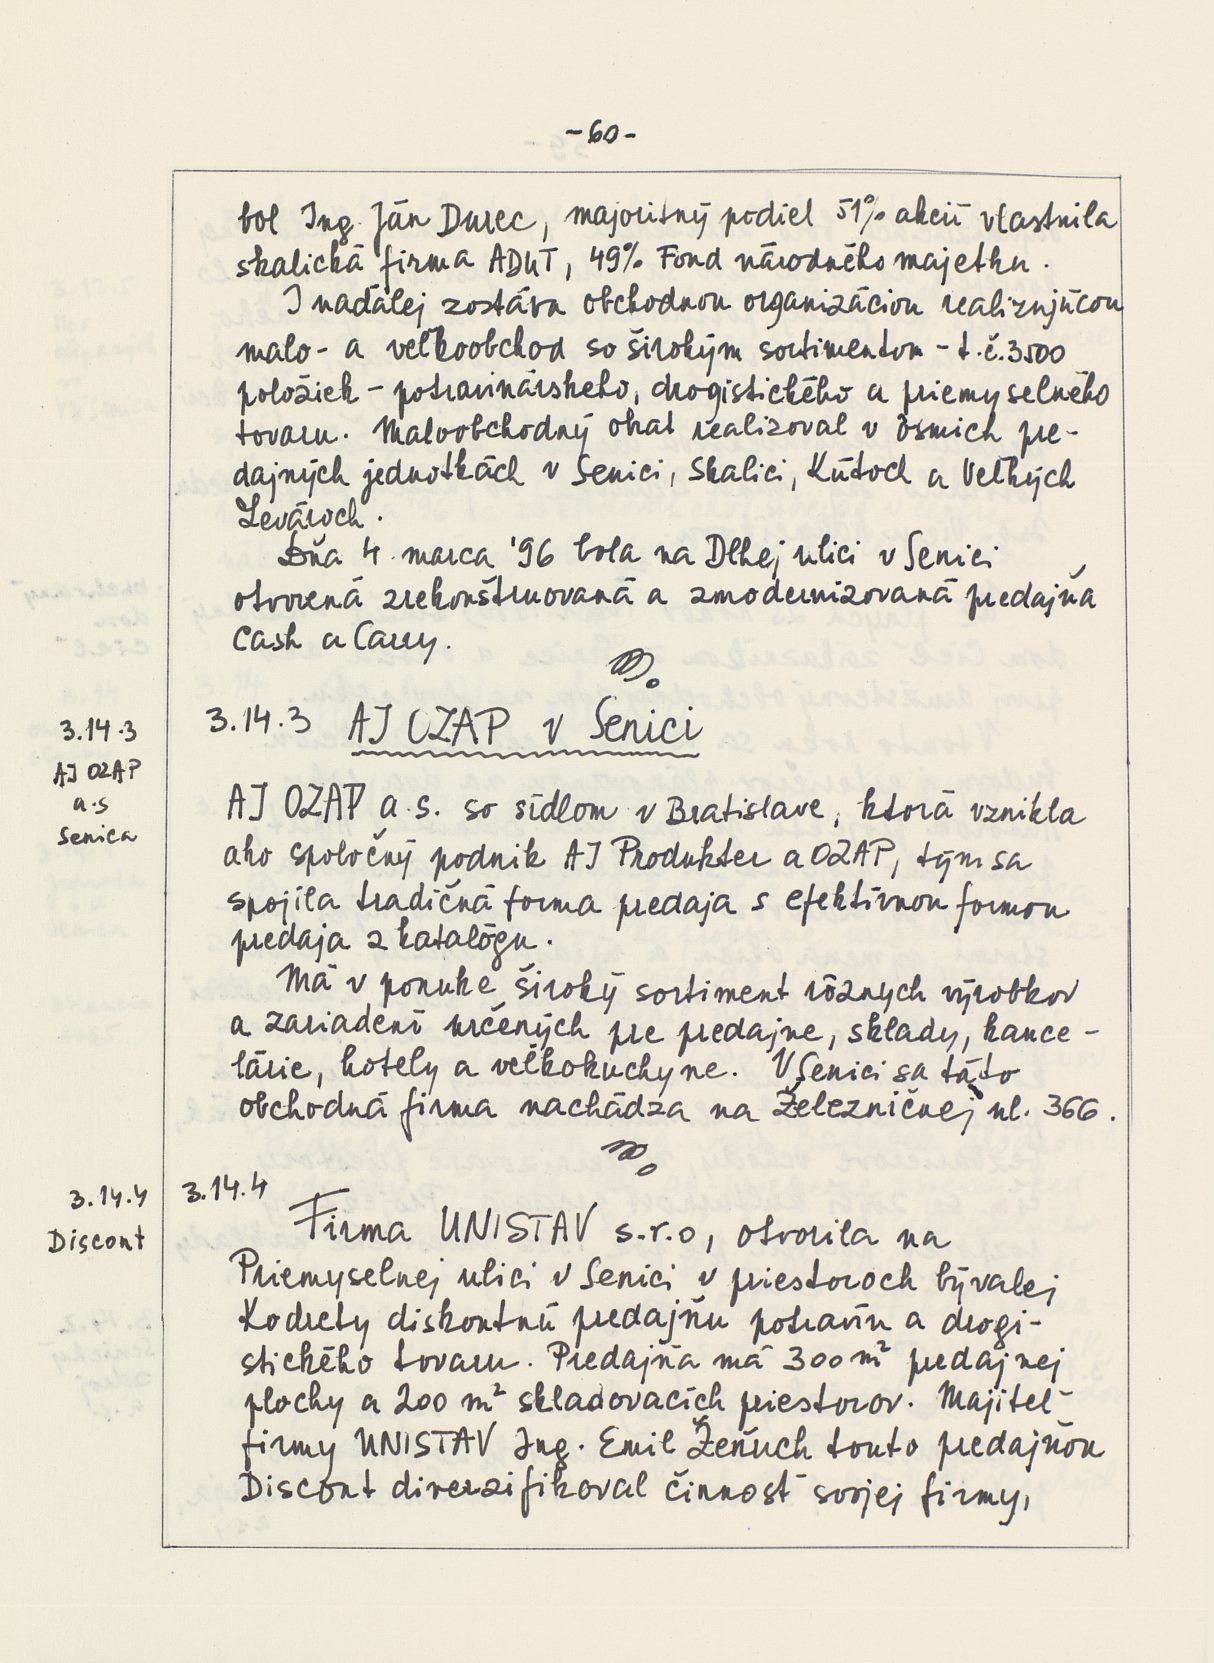 -60-
bol Ing. Ján Durec, majoritný podiel 51% akcií vlastnila
skalická firma ADUT, 49% Fond národného majetku.
I naďalej zostáva obchodnou organizáciou realizujúcou
malo- a veľkoobchod so širokým sortimentom - t.č. 3500
položiek - potravinárskeho, drogistického a priemyselného
tovaru. Maloobchodný obrat realizoval v ôsmich pre-
dajných jednotkách v Senici, Skalici, Kútoch a Veľkých
Levároch.
Dňa 4. marca '96 bola na Dlhej ulici v Senici
otvorená zrekonštruovaná a zmodernizovaná predajňa
Cash a Carry.
3.14.3
AJ OZAP
a.s
Senica
3.14.3 AJ OZAP v Senici
AJ OZAP a.s. so sídlom v Bratislave, ktorá vznikla
ako spoločný podnik AJ Produkter a OZAP, tým sa
spojila tradičná forma predaja s efektívnou formou
predaja z katalógu.
Má v ponuke široký sortiment rôznych výrobkov
a zariadení určených pre predajne, sklady, kance-
lárie, hotely a veľkokuchyne. V Senici sa táto
obchodná firma nachádza na Železničnej ul. 366.
3.14.4
Discont
3.14.4
Firma UNISTAV s.r.o, otvorila na
Priemyselnej ulici v Senici v priestoroch bývalej
Kodrety diskontnú predajňu potravín a drogi-
stického tovaru. Predajňa má 300 m² predajnej
plochy a 200 m² skladovacích priestorov. Majiteľ
firmy UNISTAV Ing. Emil Žeňuch touto predajňou
Discont diverzifikoval činnosť svojej firmy,